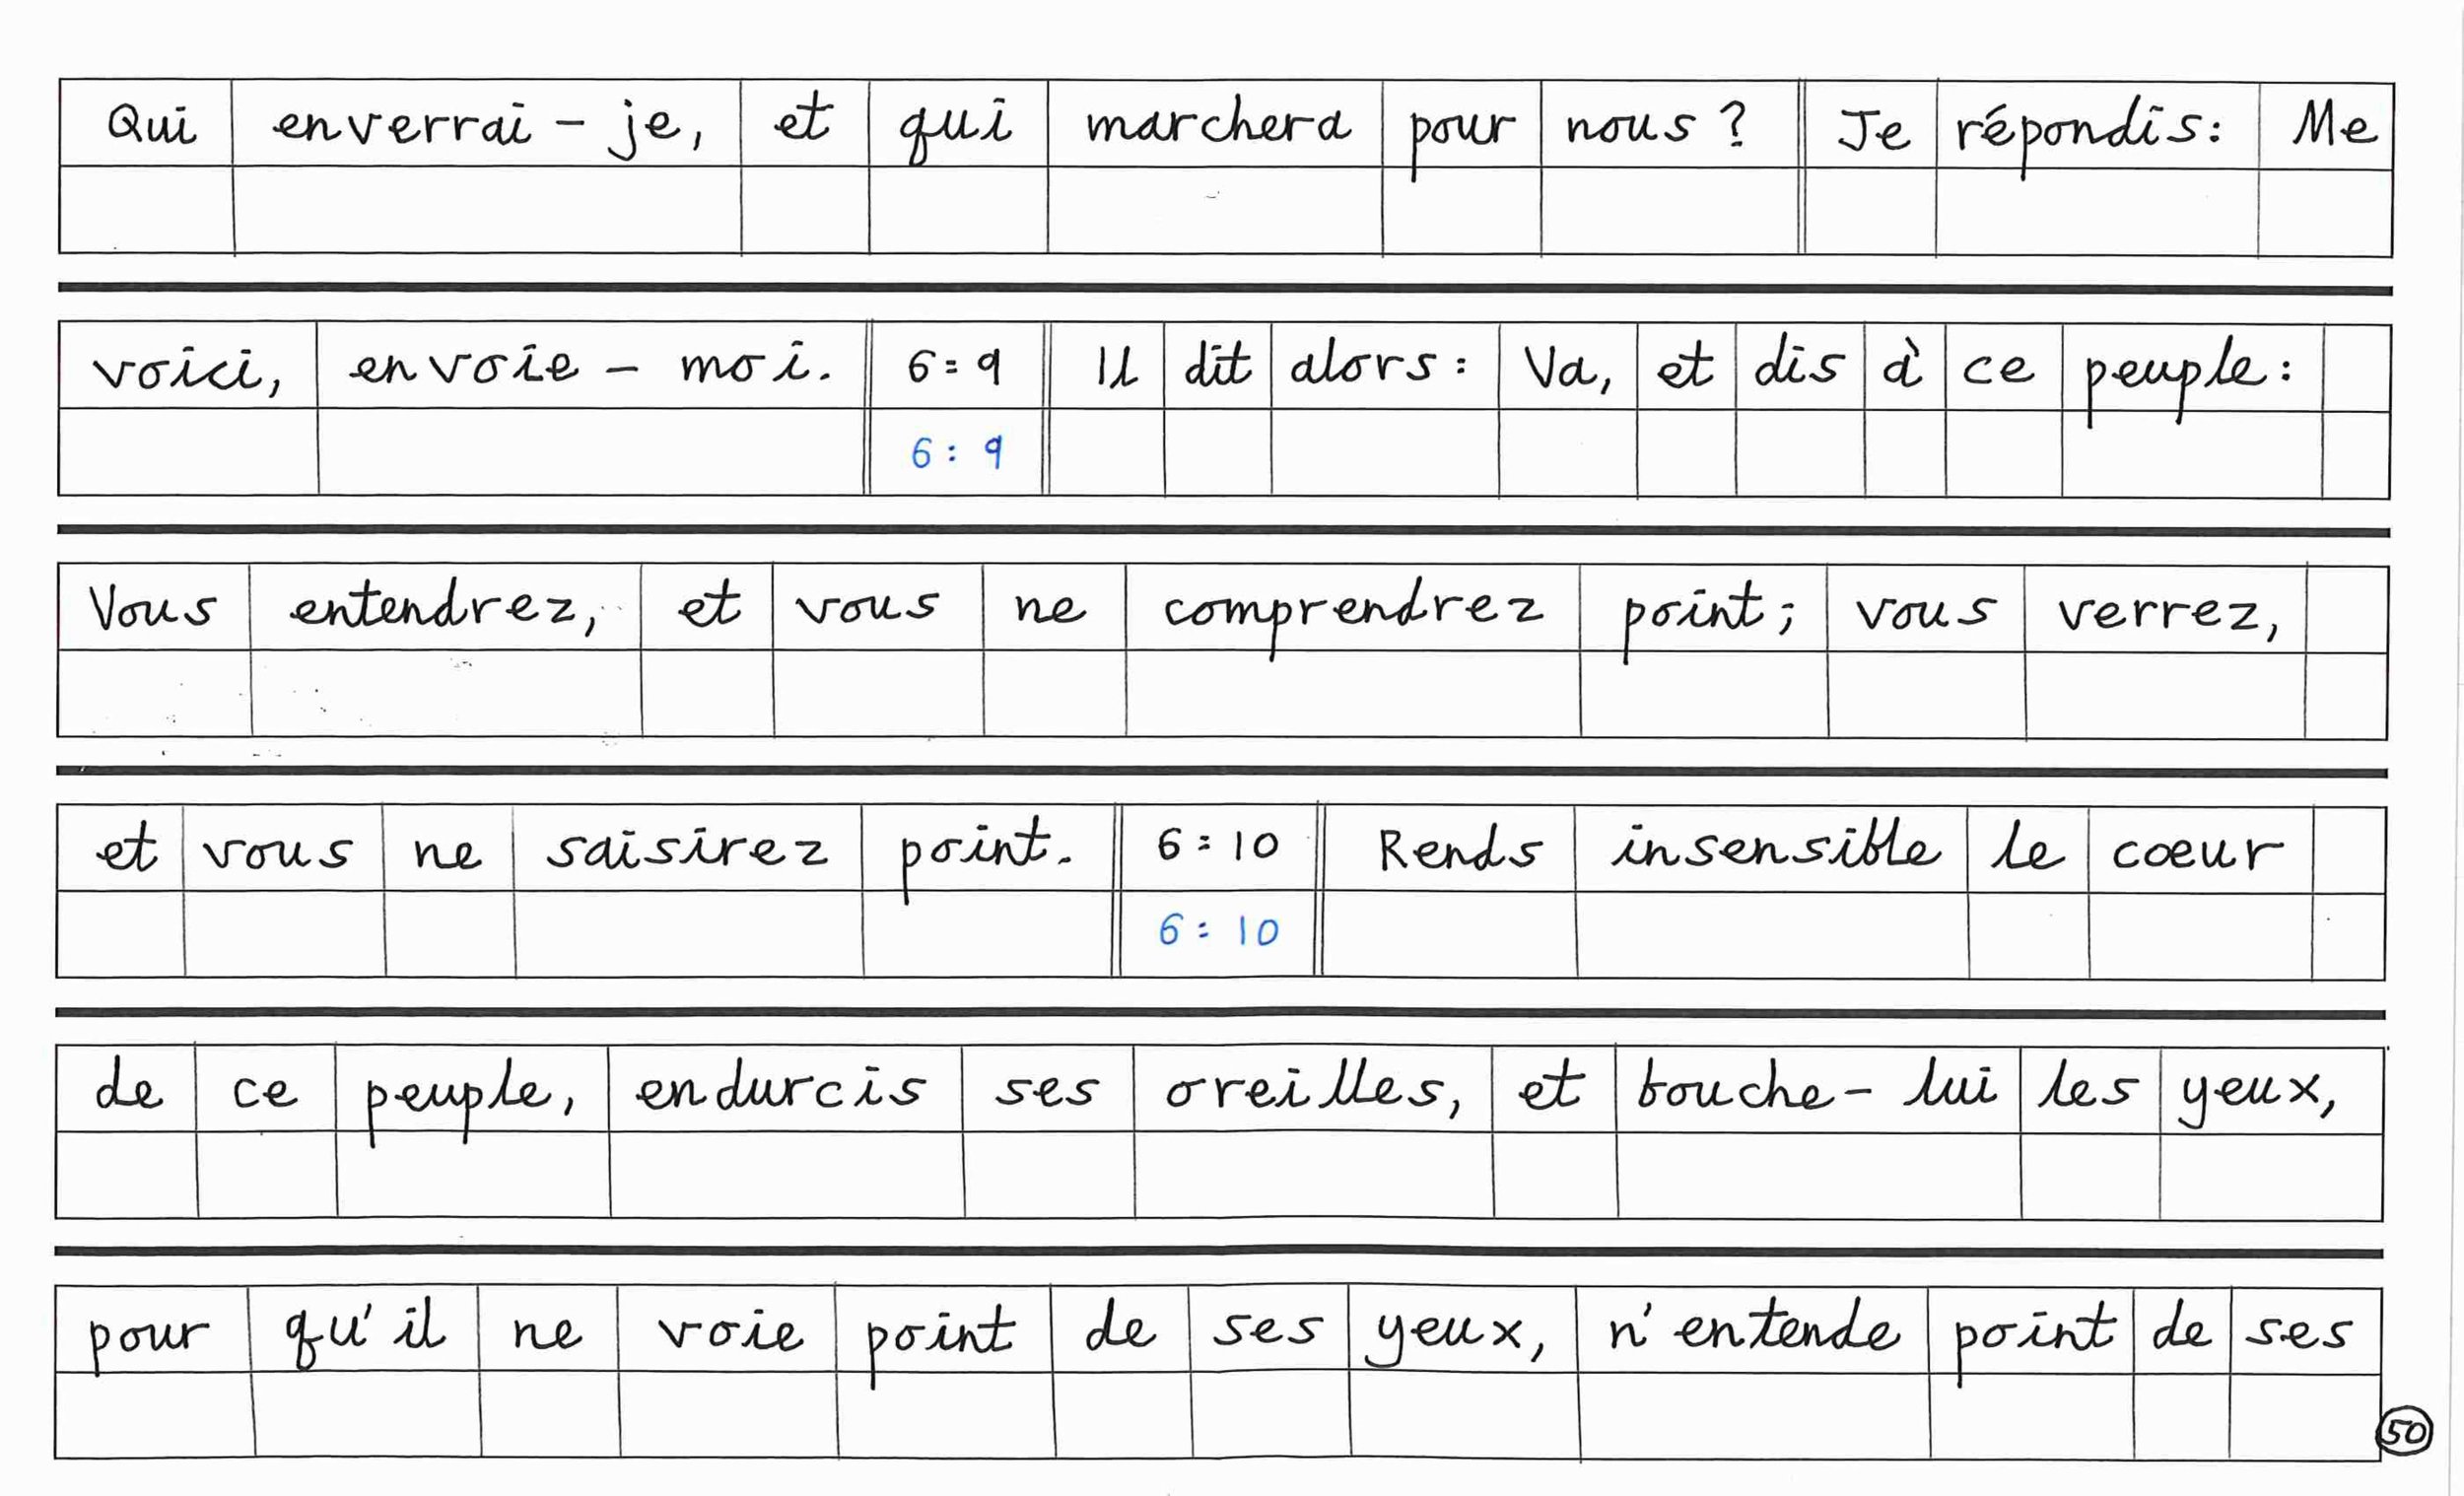 Qui enverrai-je, et qui marchera pour nous? Je répondis: Me
voici, envoie-moi. 6:9 Il dit alors: Va, et dis à ce peuple:
6:9
Vous entendrez, et vous ne comprendrez point; vous verrez,
et vous ne saisirez point. 6:10 Rends insensible le cœur
6:10
de ce peuple, endurcis ses oreilles, et bouche-lui les yeux,
pour qu'il ne voie point de ses yeux, n'entende point de ses
50